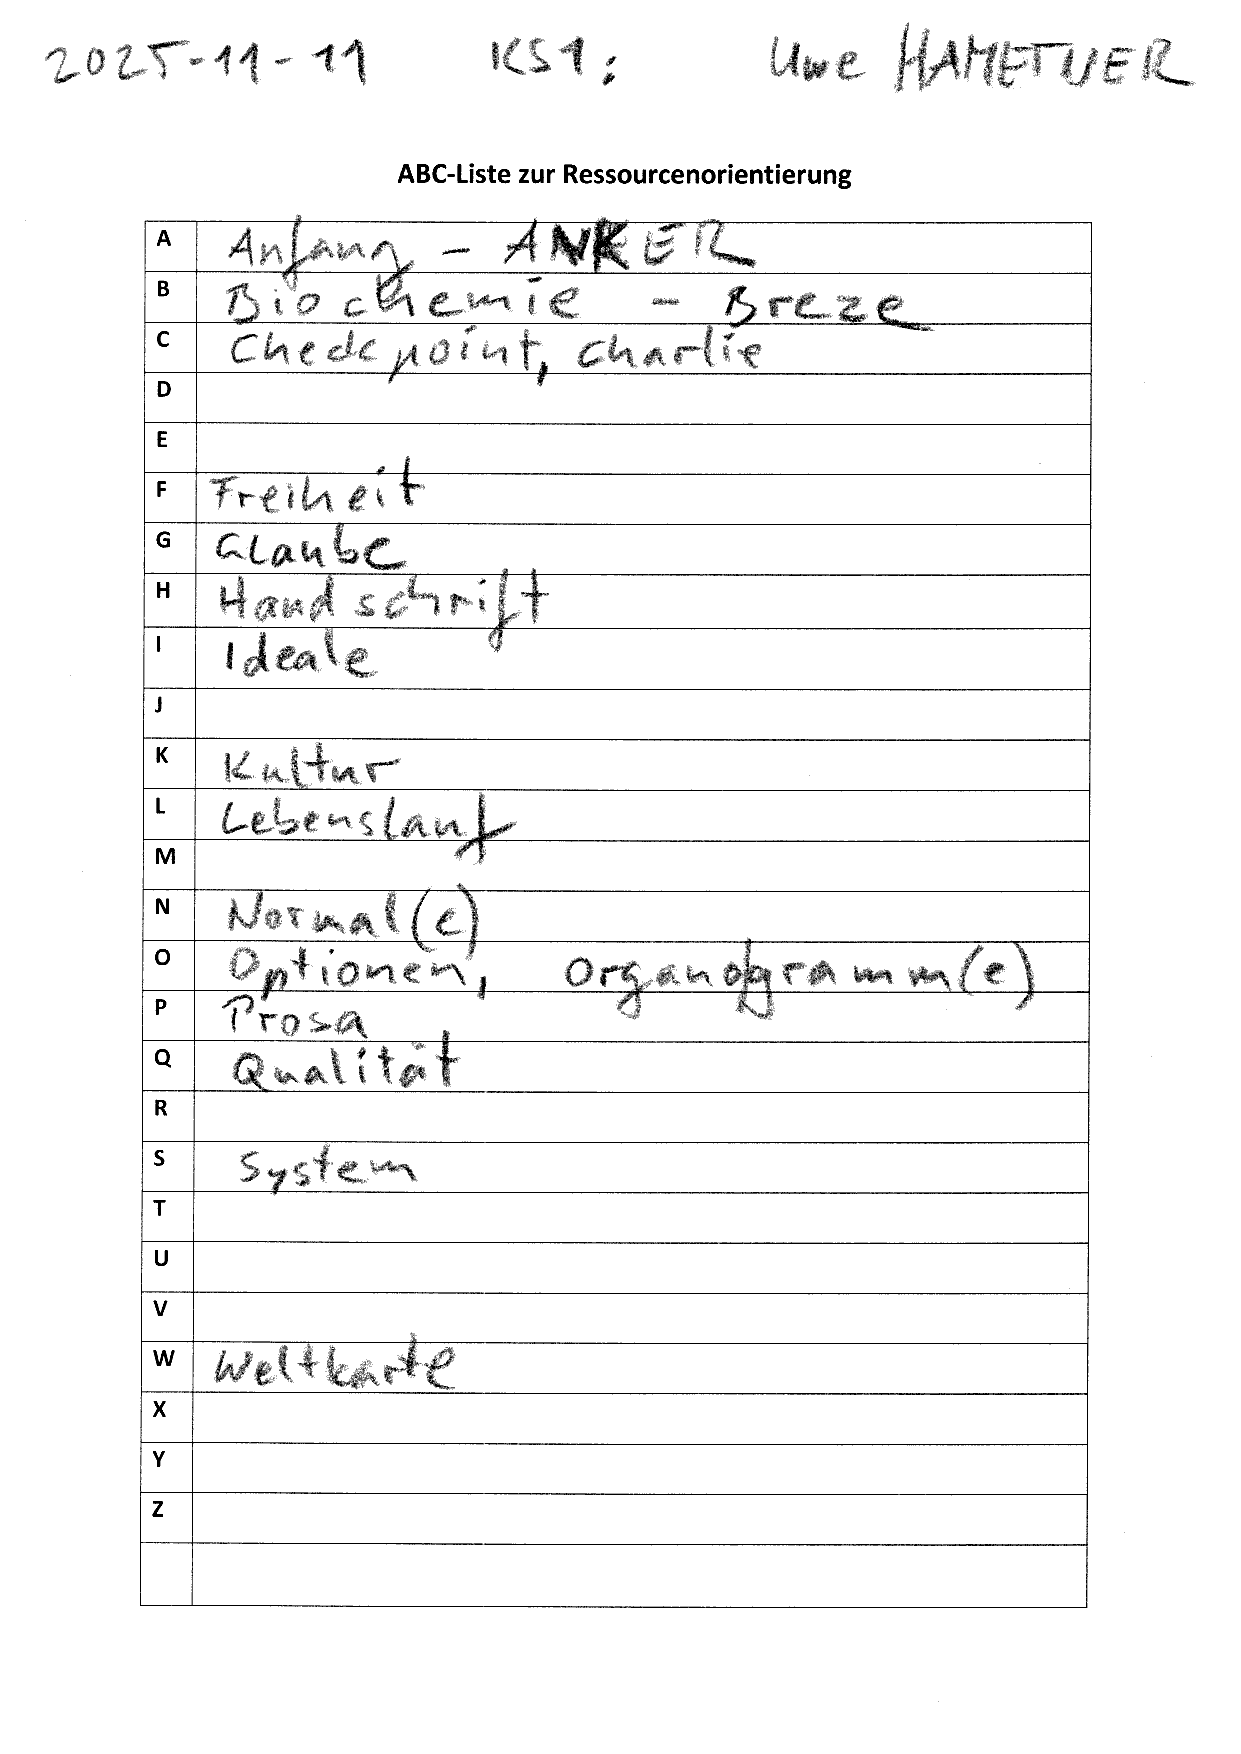 2025-11-11 KS1: Uwe HAMETNER
ABC-Liste zur Ressourcenorientierung
A Anfang - ANKER
B Biochemie - Breze
C Checkpoint, Charlie
D
E
F Freiheit
G GLaube
H Handschrift
I Ideale
J
K Kultur
L Lebenslauf
M
N Normal(e)
O Optionen, Organogramm(e)
P Prosa
Q Qualität
R
S System
T
U
V
W Weltkarte
X
Y
Z